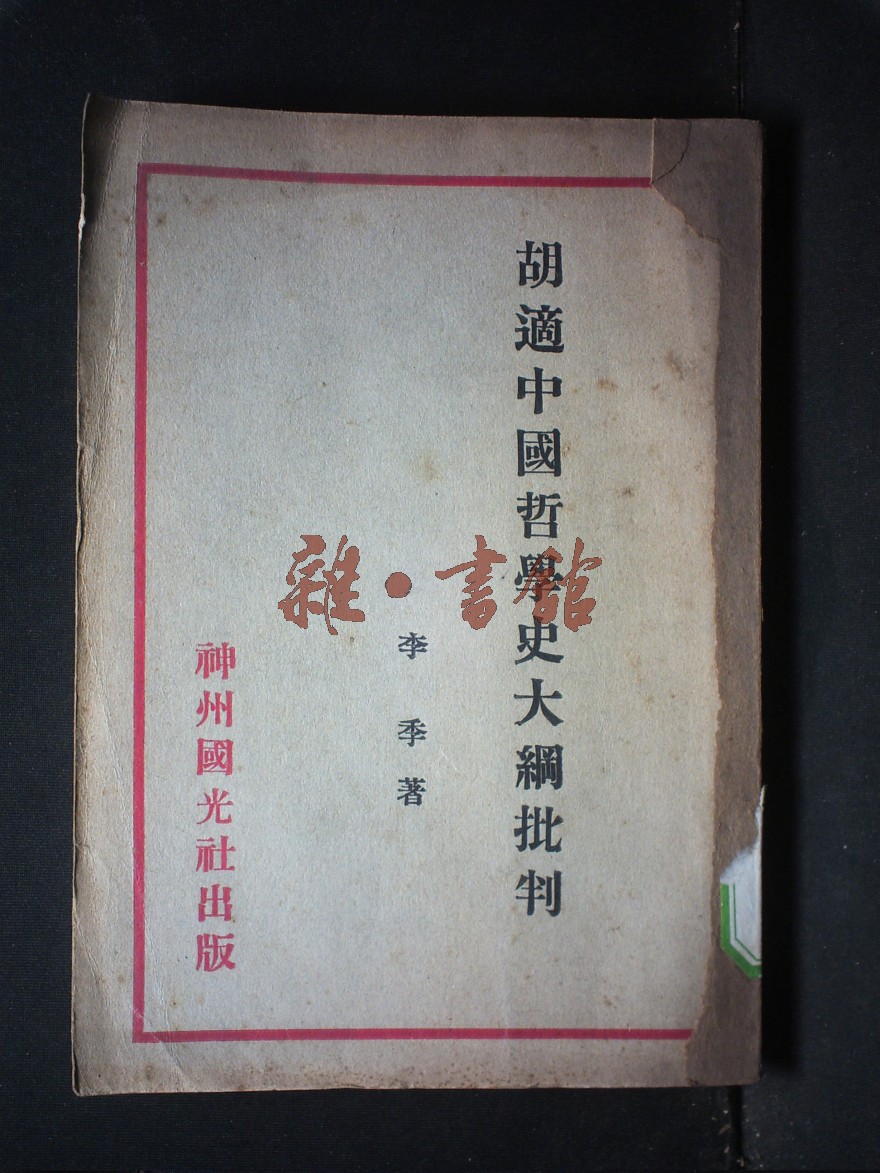 胡適中國哲學史大綱批判
李季著
神州國光社出版
雜·書館